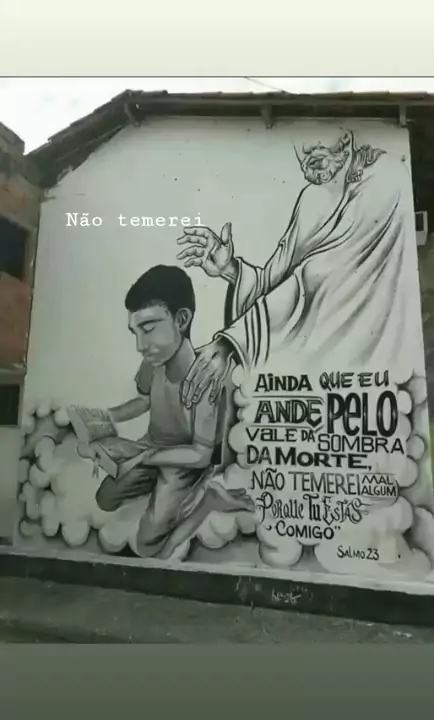 Não temerei
AINDA QUE EU
ANDE PELO
VALE DA SOMBRA
DA MORTE,
NÃO TEMEREI MAL ALGUM
PORQUE TU ESTÁS
COMIGO"
SALMO 23